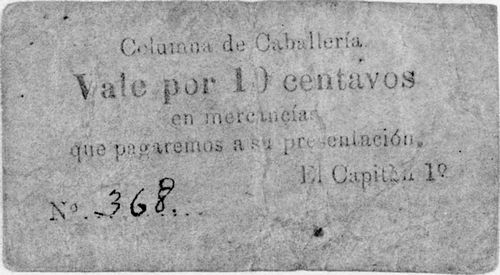 Columna de Caballería.
Vale por 10 centavos
en mercancías
que pagaremos a su presentación.
El Capitán 1º
Nº. 368.